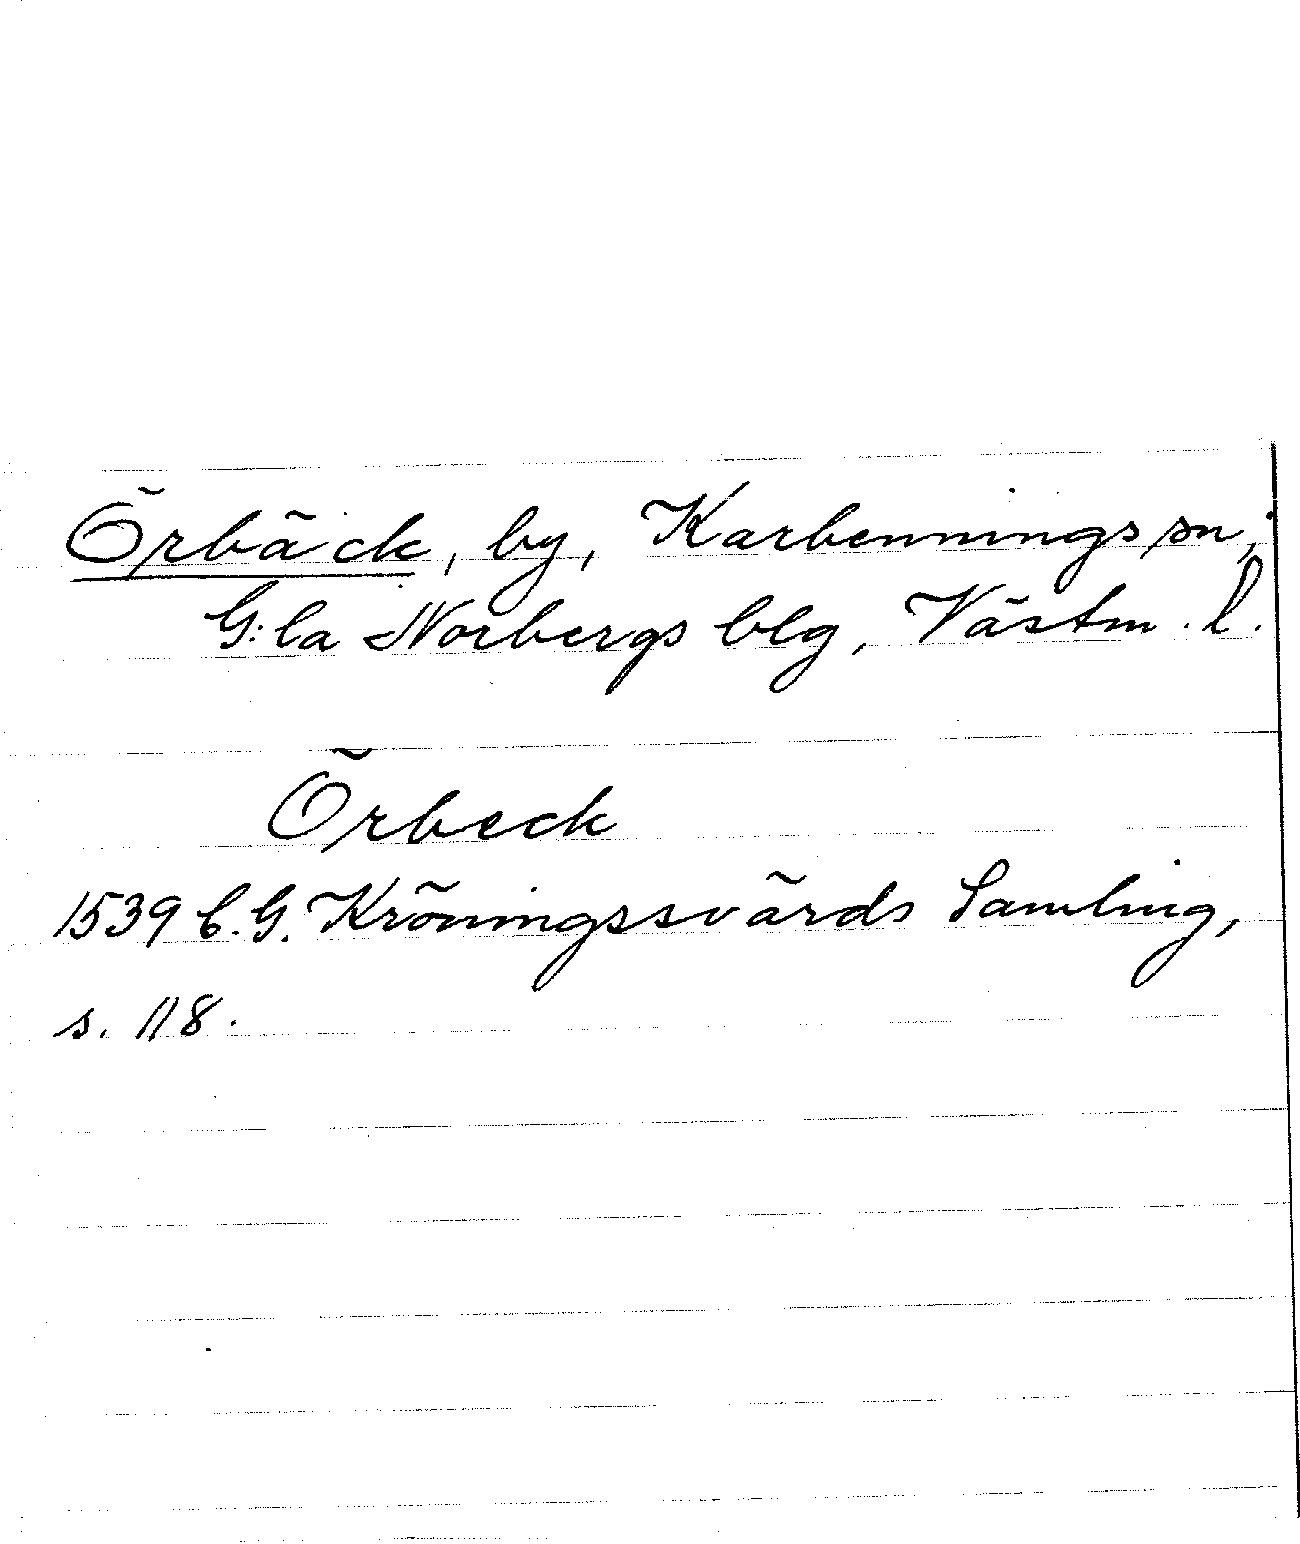 Örbäck, by, Karbennings sn,
G:la Norbergs blg, Västm. l.
Örbeck
1539 C.G. Kröningssvärds Samling,
s. 118.